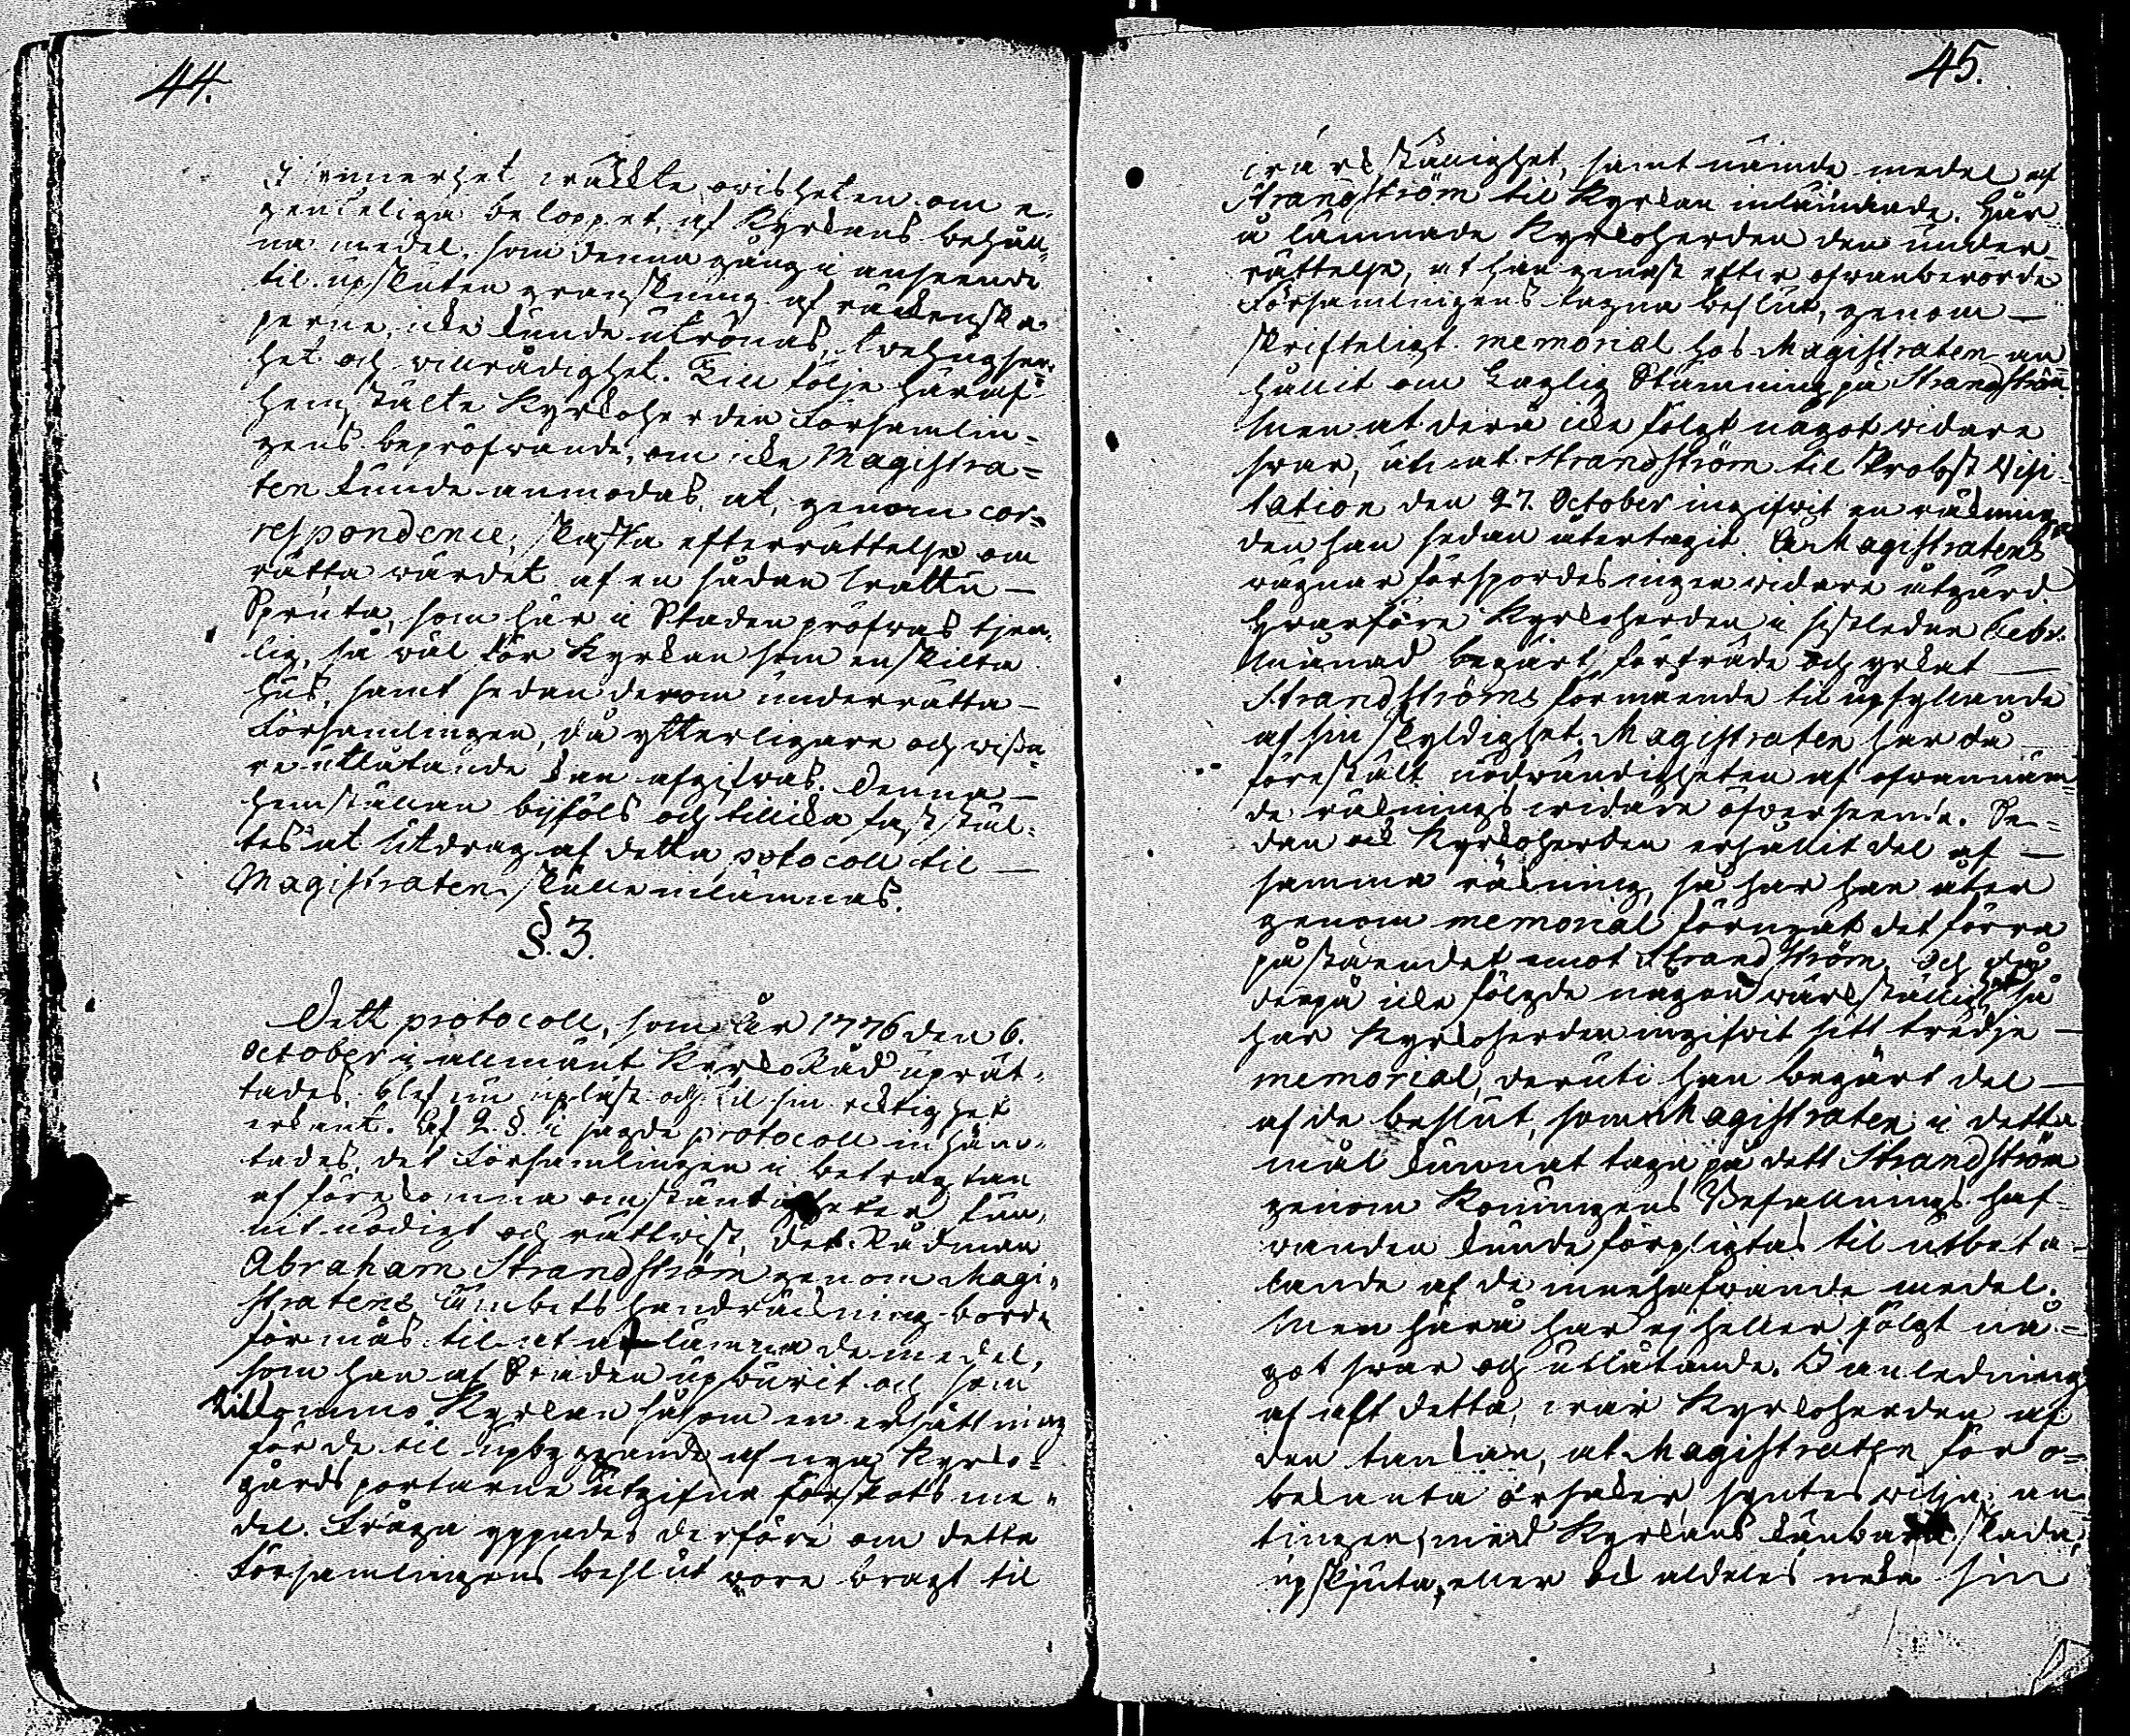 44.
I synnerhet wäckte owisheten om e-
genteliga beloppet af Kyrkans behåll-
na medel, som denna gång i anseende
til upskuten granskning af räkenska-
perne icke kunde utrönas, twehugsen-
het och willrådighet. Till följe häraf
hemstälte Kyrkoherden Församlin-
gens bepröfwande, om icke Magistra-
ten kunde anmodas, at, genom cor-
respondence, skaffa efterrättelse om
rätta wärdet af en sådan tratt-
Spruta, som här i Staden pröfwas tjen-
lig, så wäl för Kyrkan som enskilta
hus, samt sedan derom underrätta
Församlingen, då ytterligare och wissa-
re utlåtande kan afgifwas. Denna
hemställan biföls och tillika fastställ-
tes at Utdrag af detta protocoll til
Magistraten skulle inlämnas.
§. 3.
Dett protocoll, som År 1776 den 6.
October i allmänt KyrkoRåd uprät-
tades, blef nu upläst och til sin riktighet
erkänt. Af 2. §. i sagde protocoll inhäm-
tades, det Församlingen i betragtan
af förekomna omständigheter fun-
nit nödigt och rättwist, det Rådman
Abraham Strandström genom Magi-
stratens Ämbets handräckning borde
förmås til at aflämna de medel,
som han af Staden upburit och som
tillkommo Kyrkan såsom en ersättning
för de til upbyggande af nya Kyrko-
gårds portarne utgifne förskots me-
del. Fråga yppades derföre om detta
Församlingens beslut wore bragt til
45.
wärkställighet, samt nämde medel af
Strandström til Kyrkan inlämnade. Här
å lämnade Kyrkoherden den under-
rättelse, at han genast efter ofwanberörde
Församlingens tagna beslut, genom
skrifteligt memorial hos Magistraten an-
hållit om Laglig Stämning på Strandström
men at derå icke följt något widare
swar, utan at Strandström til Probst Visi-
tation den 27. October ingifwit en räkning
den han sedan återtagit. Å Magistratens
wägnar förspordes ingen widare åtgärd
hwarföre Kyrkoherden i sistledne Febr.
Månad begärt företräde och yrkat
Strandströms förmående til upfyllande
af sin skyldighet. Magistraten har då
förestält nödwändigheten af ofwannäm-
de räknings widare öfwerseende. Se-
dan ock Kyrkoherden erhållit del af
samma räkning, så har han åter
genom memorial förnyat det förra
påståendet emot Strandström och då
derpå icke följde någon wärkställighet, så
har Kyrkoherden ingifwit sitt tredje
memorial, deruti han begärt del
af de beslut, som Magistraten i detta
mål kunnat taga på dett Strandström
genom Konungens Befallnings haf-
wanden kunde förpligtas til utbeta-
lande af de innehafwande medel.
Men härå har ej heller följt nå-
got swar och utlåtande. I anledning
af alt detta, war Kyrkoherden af
den tankan, at Magistraten för o-
bekanta orsaker syntes wilja an-
tingen, med Kyrkans känbara skada,
upskjuta, eller ock aldeles neka sin